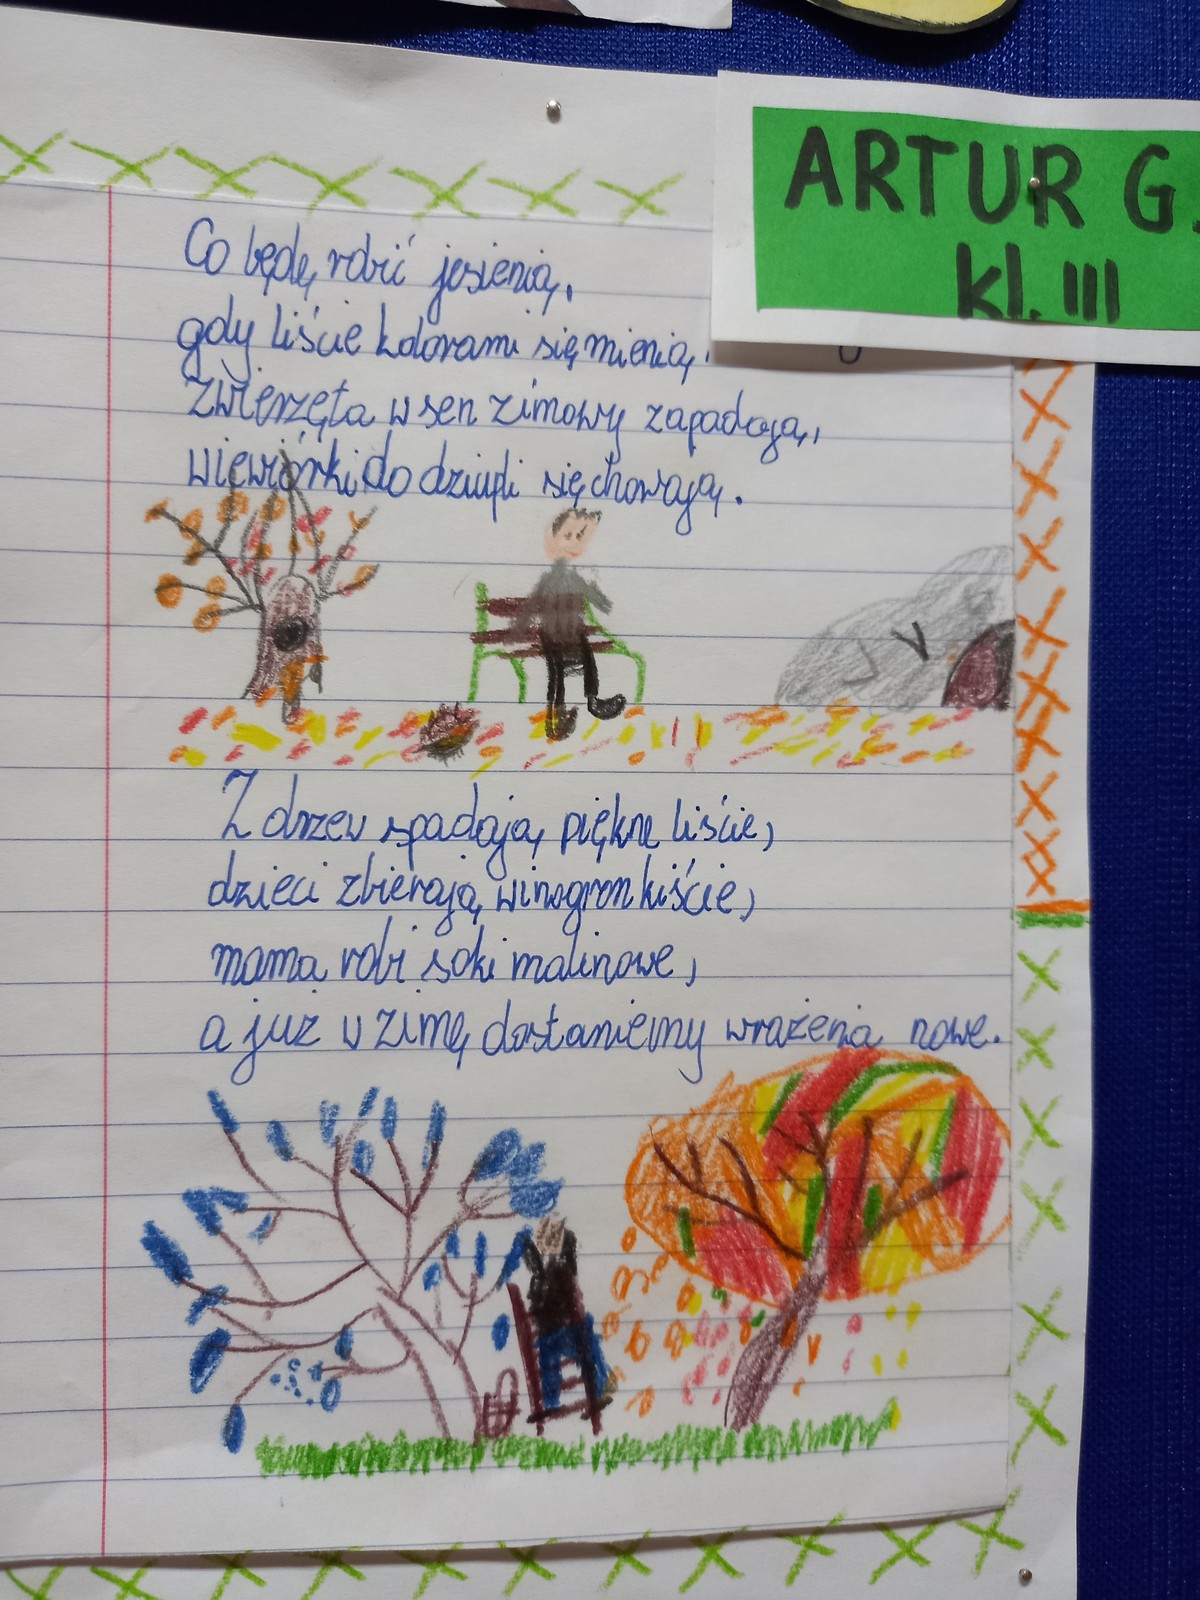 ARTUR G.
kl. III
Co będę robić jesienią,
gdy liście kolorami się mienią,
zwierzęta w sen zimowy zapadają,
wiewiórki do dziupli się chowają.
Z drzew spadają piękne liście,
dzieci zbierają winogron kiście,
mama robi soki malinowe,
a już w zimę dostaniemy wrażenia nowe.